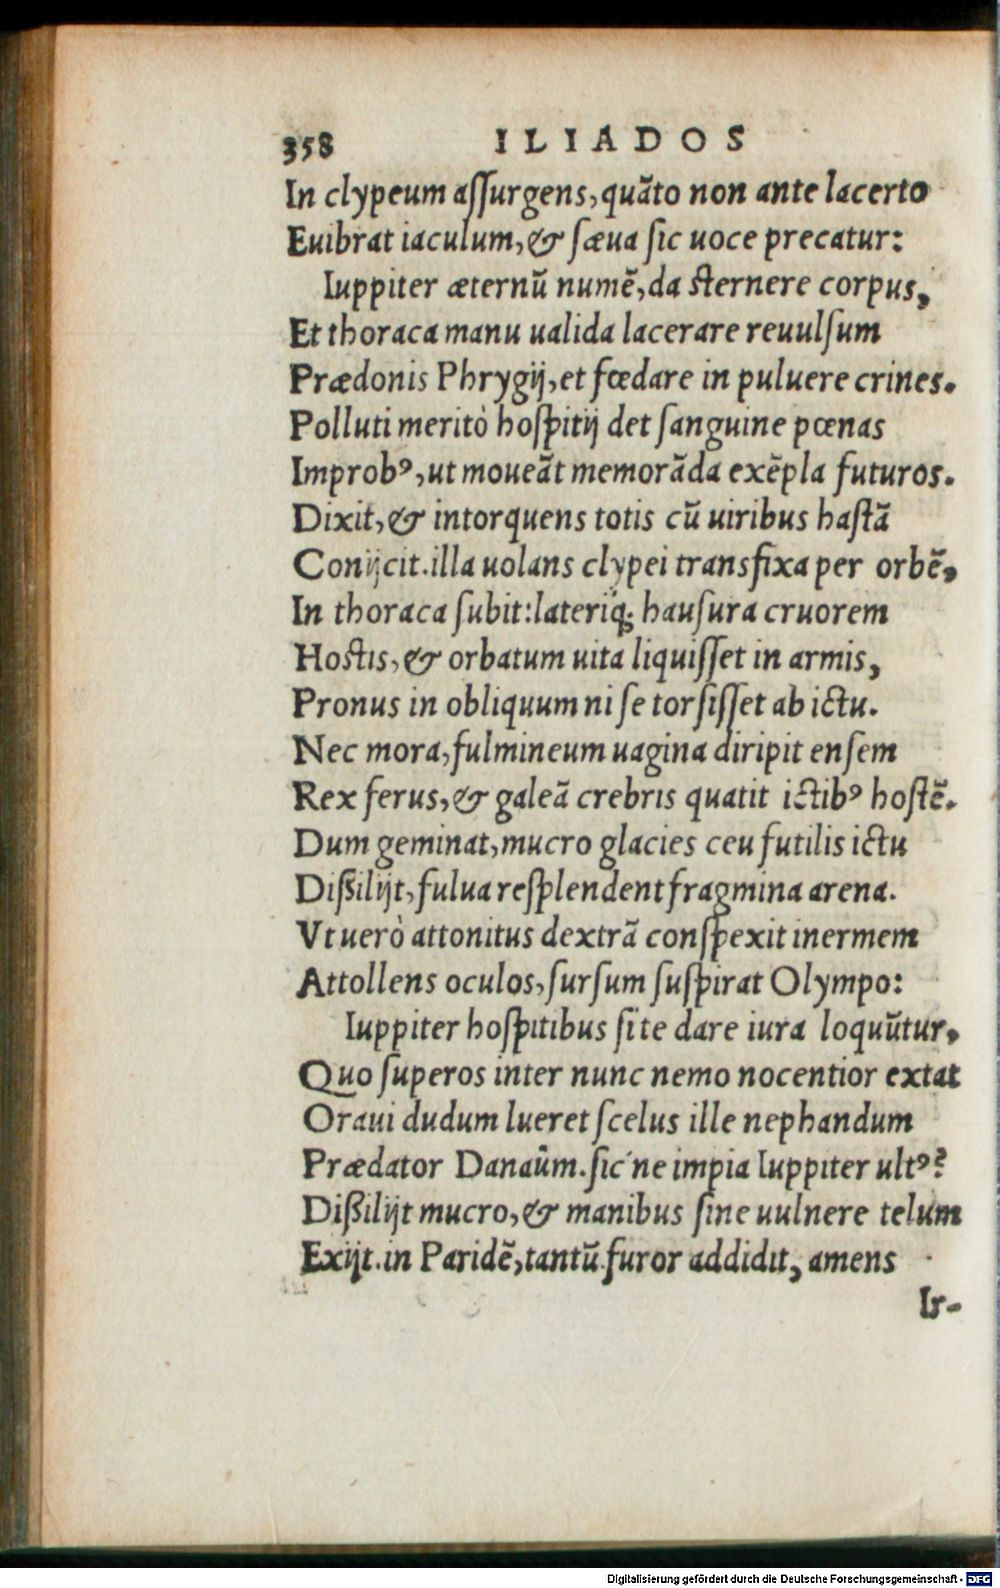 358 ILIADOS
In clypeum aſſurgens, quãto non ante lacerto
Euibrat iaculum, & ſæua ſic uoce precatur:
Iuppiter æternũ numẽ, da ſternere corpus,
Et thoraca manu ualida lacerare reuulſum
Prædonis Phrygij, et fœdare in puluere crines.
Polluti meritò hoſpitij det ſanguine pœnas
Improbꝰ, ut moueãt memorãda exẽpla futuros.
Dixit, & intorquens totis cũ uiribus haſtã
Conijcit. illa uolans clypei transfixa per orbẽ,
In thoraca ſubit: lateriq́; hauſura cruorem
Hoſtis, & orbatum uita liquiſſet in armis,
Pronus in obliquum ni ſe torſiſſet ab ictu.
Nec mora, fulmineum uagina diripit enſem
Rex ferus, & galeã crebris quatit ictibꝰ hoſtẽ.
Dum geminat, mucro glacies ceu futilis ictu
Dißilijt, fulua reſplendent fragmina arena.
Vt uerò attonitus dextrã conſpexit inermem
Attollens oculos, ſurſum ſuſpirat Olympo:
Iuppiter hoſpitibus ſi te dare iura loquũtur,
Quo ſuperos inter nunc nemo nocentior extat
Oraui dudum lueret ſcelus ille nephandum
Prædator Danaûm. ſic'ne impia Iuppiter ultꝰ?
Dißilijt mucro, & manibus ſine uulnere telum
Exijt. in Paridẽ, tantũ furor addidit, amens
Ir-
Digitalisierung gefördert durch die Deutsche Forschungsgemeinschaft - DFG